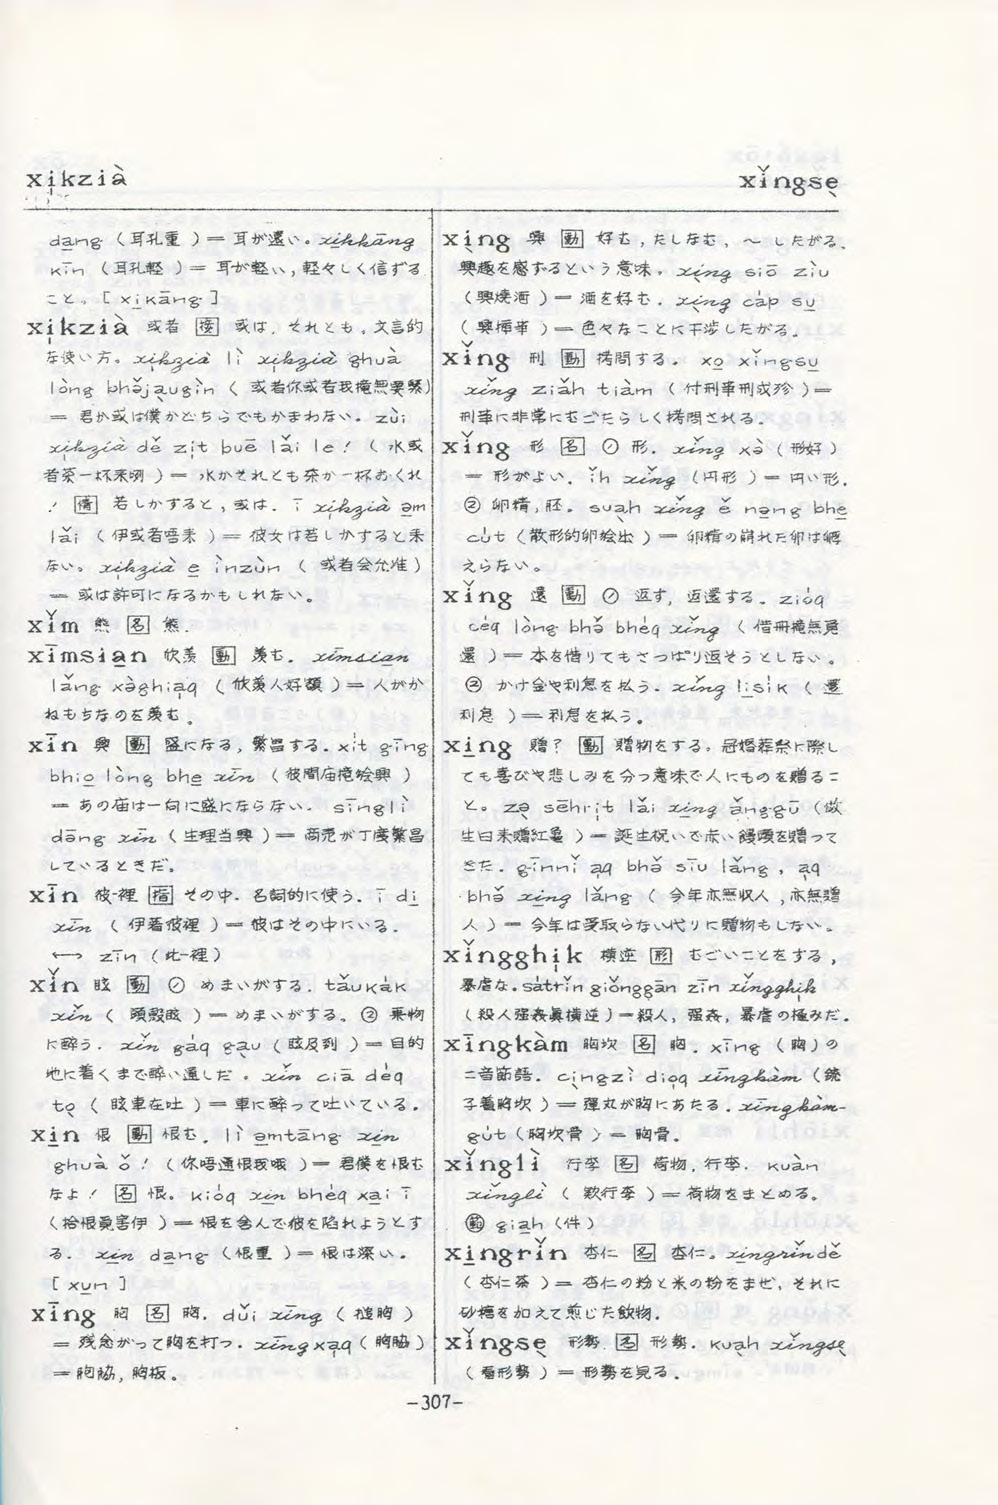 xi̍kzià
xǐngsẹ
da̱ng（耳孔重）＝ 耳が遠い。xi̍kkāng
kīn（耳孔軽）＝ 耳が軽い，軽々しく信ずる
こと。［xi̱kāng］
xi̍kzià 或者 接 或は．それとも．文言的
な使い方。xi̍kzià lì xi̍kzià ghuà
lòng bhǒjạugìn（或者你或者我攏無要緊）
＝ 君か或は僕かどちらでもかまわない．zùi
xi̍kzià dě zi̍t buē lǎi le！（水或
者茶一杯来咧）＝ 水かそれとも茶か一杯おくれ
！ 情 若しかすると，或は．ī xi̍kzià a̱m
lǎi（伊或者唔来）＝ 彼女は若しかすると来
ない。xi̍kzià e̱ ìnzùn（或者会允准）
＝ 或は許可になるかもしれない。
xǐm 熊 名 熊．
xīmsia̱n 欣羨 動 羨む．xīmsia̱n
lǎng xàghia̍q（欣羨人好額）＝ 人がか
ねもちなのを羨む。
xīn 興 動 盛になる，繁昌する．xít gīng
bhio̱ lòng bhe̱ xīn（彼間庙攏𣍐興）
＝ あの庙は一向に盛にならない．sīnglì
dōng xīn（生理当興）＝ 商売が丁度繁昌
しているときだ。
xīn 彼-裡 指 その中．名詞的に使う．ī di̱
xīn（伊着彼裡）＝ 彼はその中にいる．
←→ zīn（此-裡）
xǐn 眩 動 ① めまいがする．tǎukák
xǐn（頭殻眩）＝ めまいがする。② 乗物
に酔う．xǐn gáq gạu（眩及到）＝ 目的
地に着くまで酔い通しだ。xǐn ciā déq
tọ（眩車在吐）＝ 車に酔って吐いている．
xi̱n 恨 動 恨む．lì a̱mtāng xi̱n
ghuà ǒ！（你唔通恨我哦）＝ 君僕を恨む
なよ！ 名 恨。kióq xi̱n bhéq xa̱i ī
（拾恨要害伊）＝ 恨を含んで彼を陥れようとす
る．xi̱n da̱ng（恨重）＝ 恨は深い．
［xu̱n］
xīng 胸 名 胸．dǔi xīng（搥胸）
＝ 残念がって胸を打つ．xīngxa̍q（胸脇）
＝ 胸脇，胸板。
xịng 興 動 好む，たしなむ，〜したがる．
興趣を感ずるという意味。xịng siō ziù
（興焼酒）＝ 酒を好む．xịng cáp su̱
（興揷事）＝ 色々なことに干渉したがる．
xǐng 刑 動 拷問する．xo̱ xǐngsu̱
xǐng ziǎh tiàm（付刑事刑成殄）＝
刑事に非常にむごたらしく拷問される．
xǐng 形 名 ① 形．xǐng xà（形好）
＝ 形がよい．ǐh xǐng（円形）＝ 円い形．
② 卵精，胚．suạh xǐng ě nạ̱ng bhe̱
cút（散形的卵𣍐出）＝ 卵精の崩れた卵は孵
えらない。
xǐng 還 動 ① 返す，返還する．zióq
céq lòng bhǒ bhéq xǐng（借冊攏無覓
還）＝ 本を借りてもさっぱり返そうとしない。
② かけ金や利息を払う．xǐng li̱sik（還
利息）＝ 利息を払う。
xi̱ng 贈？ 動 贈物をする。冠婚葬祭に際し
ても喜びや悲しみを分つ意味で人にものを贈るこ
と。zọ sēhri̍t lǎi xi̱ng ǎnggū（做
生日来贈紅亀）＝ 誕生祝いで赤い饅頭を贈って
きた．gīnnǐ a̍q bhǒ sīu lǎng，a̍q
bhǒ xi̱ng lǎng（今年亦無収人，亦無贈
人）＝ 今年は受取らない代りに贈物もしない。
xǐngghi̍k 横逆 形 むごいことをする，
暴虐な．sátrǐn giǒnggān zīn xǐngghi̍k
（殺人強姦眞横逆）＝ 殺人，強姦，暴虐の極みだ．
xīngkàm 胸坎 名 胸．xīng（胸）の
二音節語．cịngzì dio̍q xīngkàm（銃
子着胸坎）＝ 弾丸が胸にあたる．xīngkàm-
gút（胸坎骨）＝ 胸骨。
xǐnglì 行李 名 荷物，行李．kuàn
xǐnglì（款行李）＝ 荷物をまとめる。
範 gia̱h（件）
xi̱ngrǐn 杏仁 名 杏仁。xi̱ngrǐndě
（杏仁茶）＝ 杏仁の粉と米の粉をまぜ，それに
砂糖を加えて煎じた飲物．
xǐngsẹ 形勢 名 形勢．kuạh xǐngsẹ
（看形勢）＝ 形勢を見る．
-307-